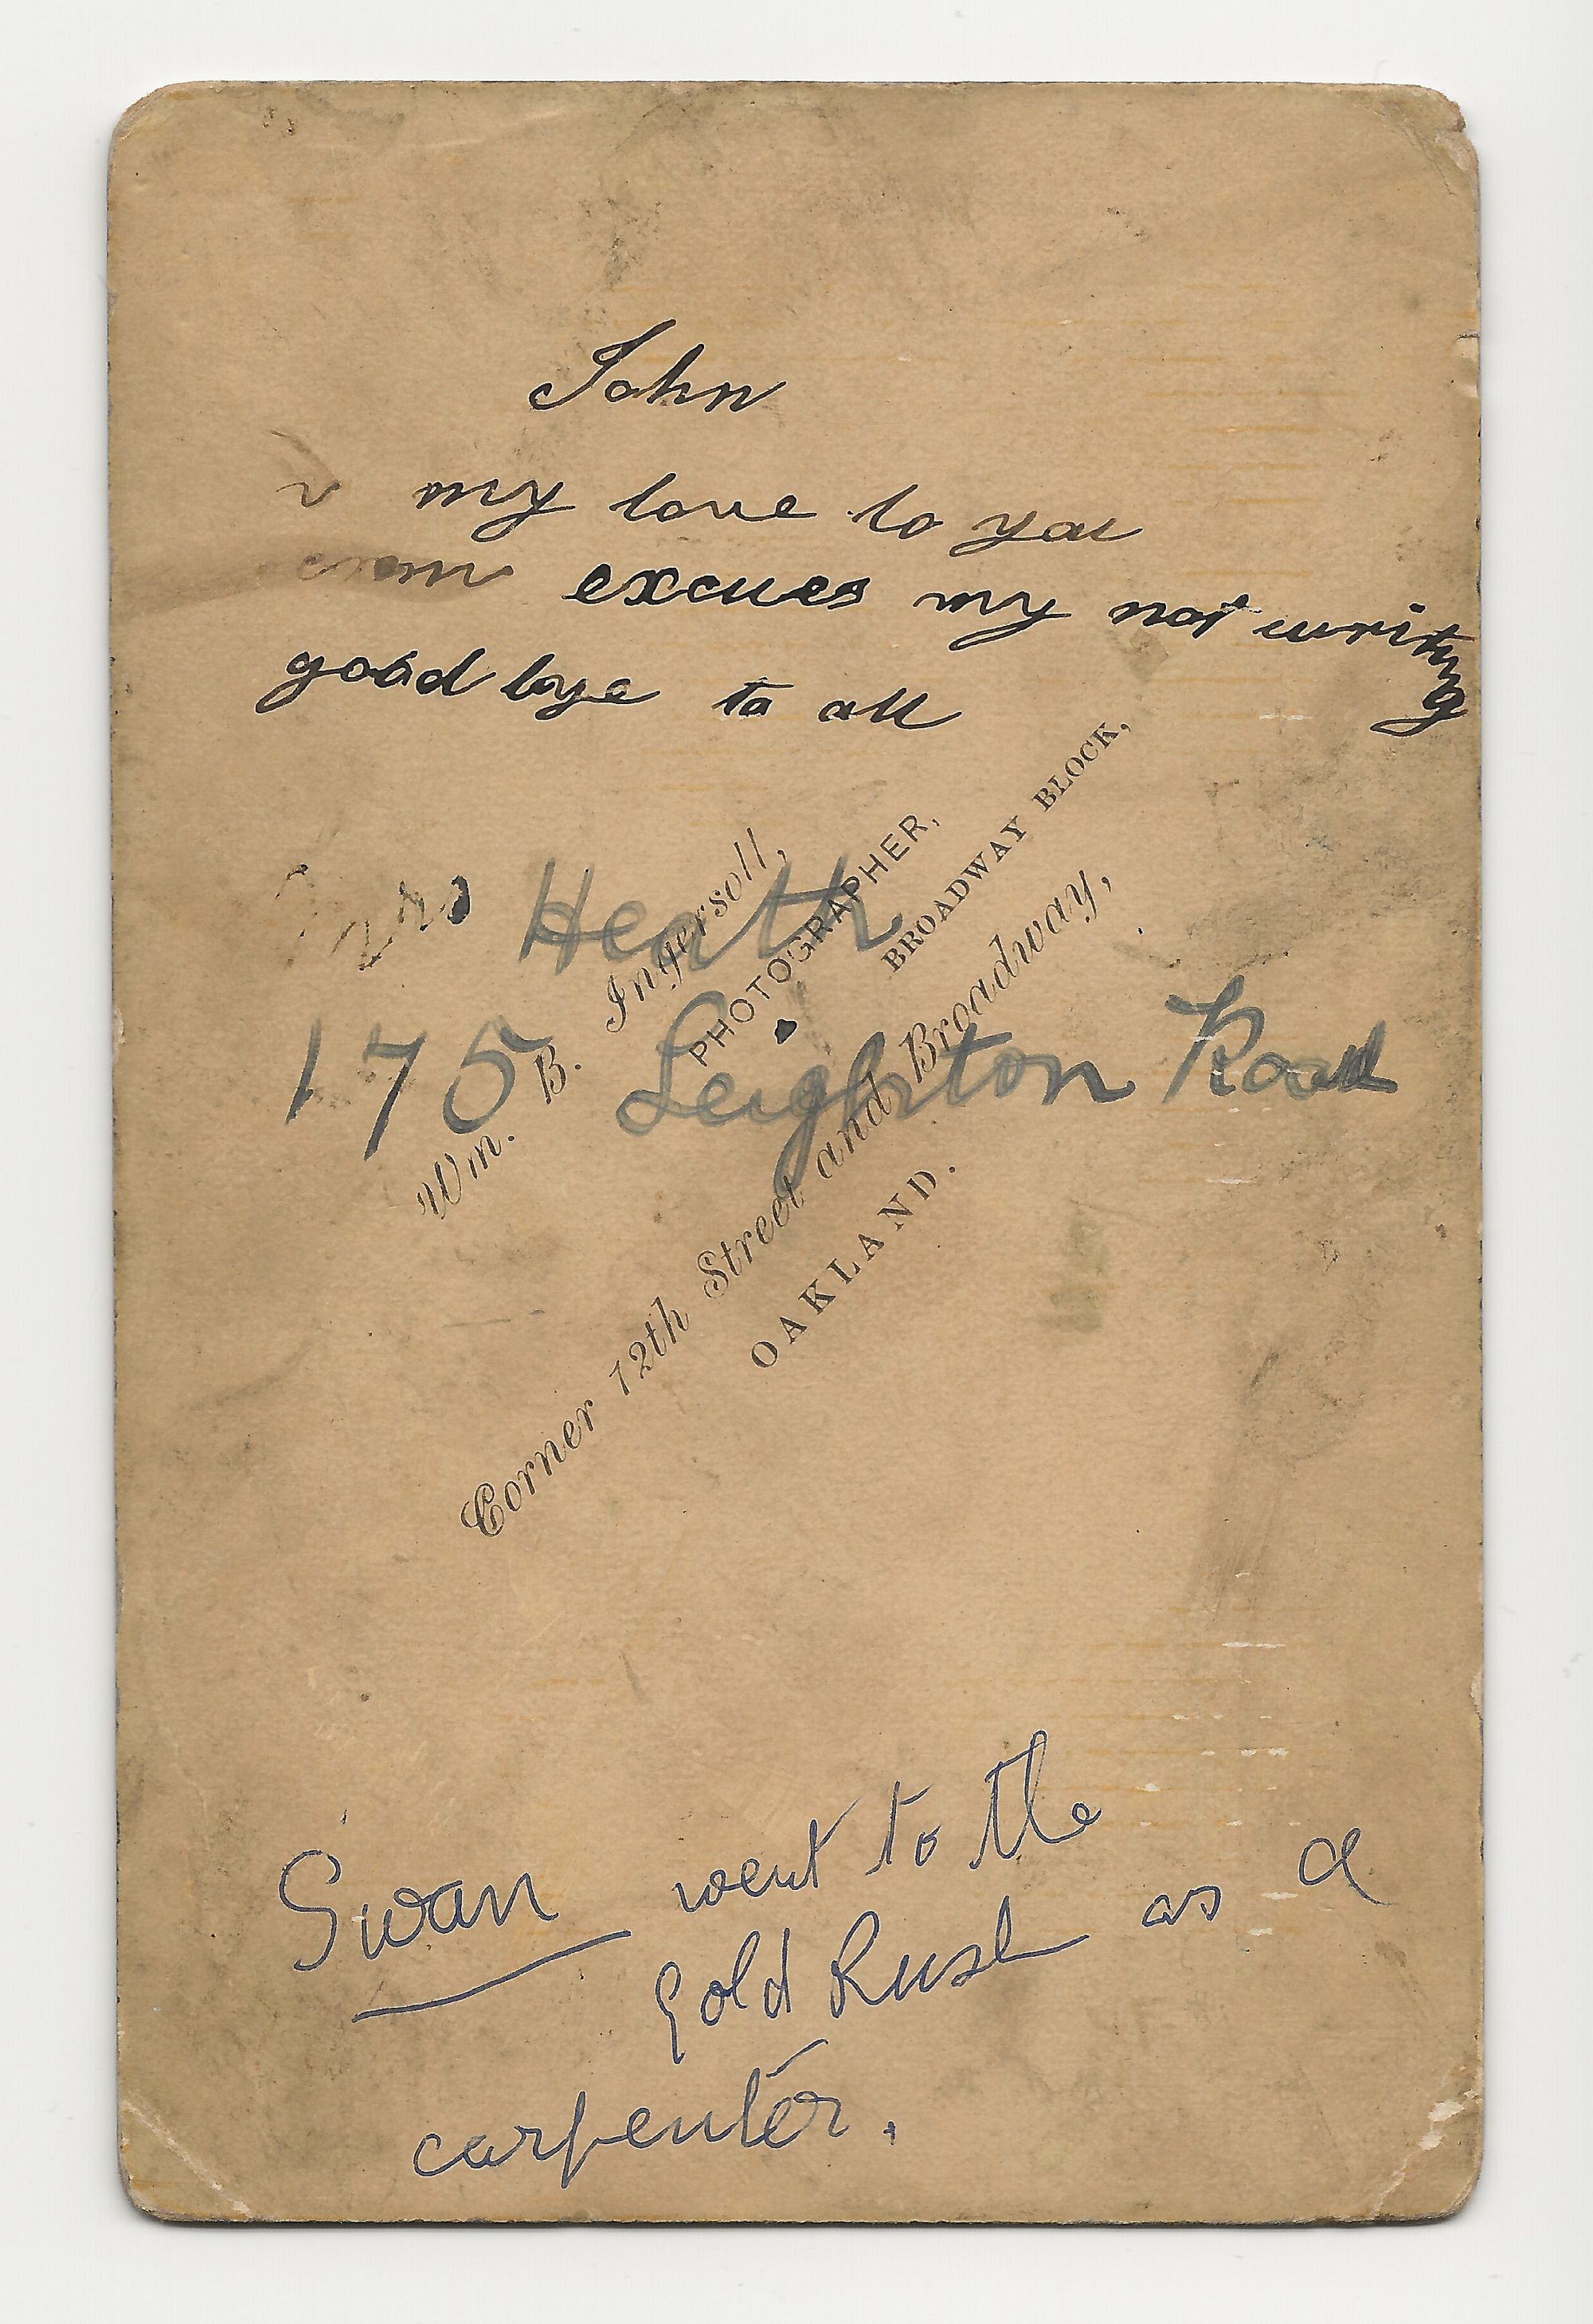 John
my love to you
excues my not writing
good bye to all
Heath
175 Leighton Road
Wm. B. Ingersoll,
PHOTOGRAPHER,
BROADWAY BLOCK,
Corner 12th Street and Broadway,
OAKLAND.
Swan went to the
Gold Rush as a
carpenter.